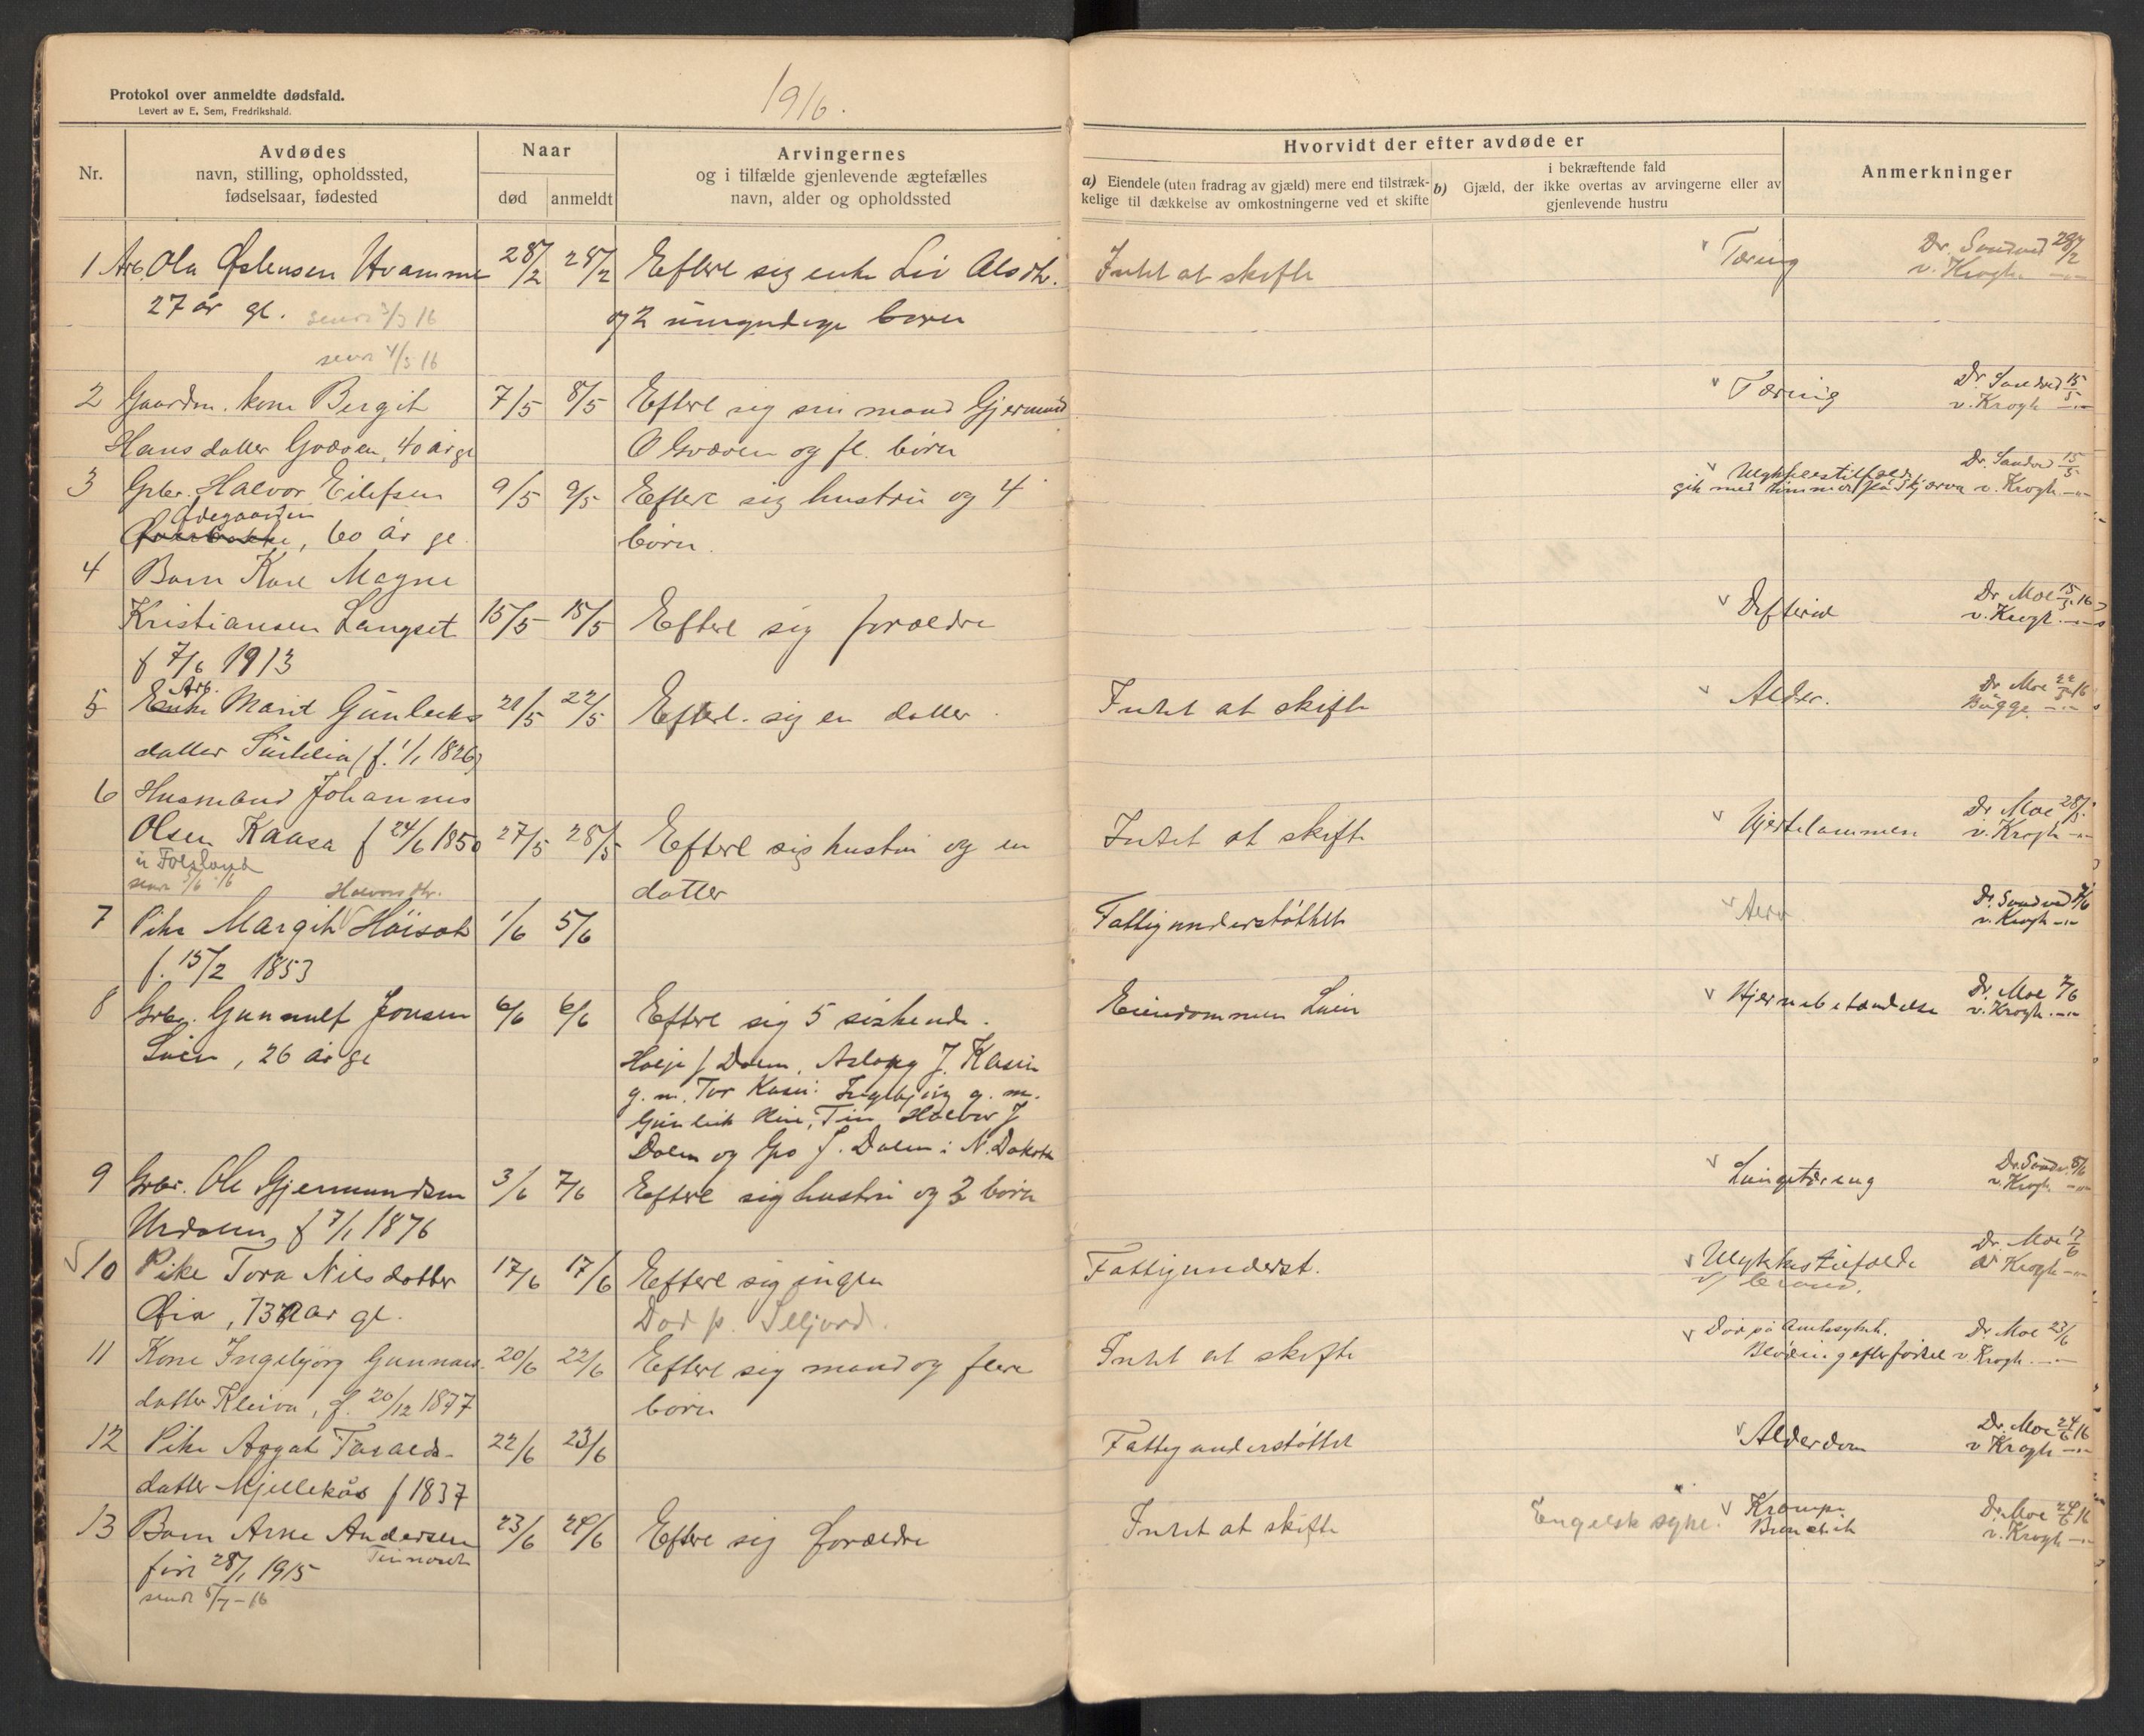 Protokol over anmeldte dødsfald.
Levert av E. Sem, Fredrikshald.
1916.
Nr.
Avdødes
navn, stilling, opholdssted,
fødselsaar, fødested
Naar
død
anmeldt
Arvingernes
og i tilfælde gjenlevende ægtefælles
navn, alder og opholdssted
Hvorvidt der efter avdøde er
a) Eiendele (uten fradrag av gjæld) mere end tilstræk-
kelige til dækkelse av omkostningerne ved et skifte
i bekræftende fald
b) Gjæld, der ikke overtas av arvingerne eller av
gjenlevende hustru
Anmerkninger
1 Arb. Ola Østensen Hvamme 28/2 28/2 Efterl sig enke Liv Olsdtr. Intet at skifte Tæring Dr. Sandved 28/2
27 år gl. sendt 3/3 16 og 2 umyndige børn v. Krogh —"—
sendt 4/5 16
2 Gaardm. kone Bergit 7/5 8/5 Efterl sig sin mand Gjermund Tæring Dr. Sandved 15/5
Hansdatter Gvåven, 40 år gl O Gvåven og fl. børn v. Krogh —"—
3 Grbr. Halvor Eilefsen 9/5 9/5 Efterl sig hustru og 4 Ulykkestilfælde Dr. Sandved 15/5
Ødegaarden gik med tømmer på Skjærva v. Krogh —"—
, 60 år gl. børn.
4 Barn Kare Magne
Kristiansen Langset 15/5 15/5 Efterl sig forældre Difteri Dr Moe 15/5 16
f 7/6 1913 v. Krogh —"—
Arb.
5 Enke Marit Gunleiks 21/5 22/5 Efterl. sig en datter. Intet at skifte Alder. Dr Moe 22/5 16
datter (f. 1/1 1826) Bugge —"—
6 Husmand Johannes
Olsen Kaasa f 24/6 1850 27/5 28/5 Efterl sig hustru og en Intet at skifte Hjertelammen Dr. Moe 28/5
i Folsland datter v. Krogh —"—
sendt 5/6 16
Halvorsdtr.
7 Pike Margit Höisæt 1/6 5/6 Fattigunderstøttet Dr. Sandved 7/6
f. 15/2 1853 v. Krogh —"—
8 Grbr. Gunnulf Jonsen 6/6 6/6 Efterl sig 5 søskende. Eiendommen Luin Hjernebetændelse Dr. Moe 7/6
Luin, 26 år gl v. Krogh —"—
J Dalen, Aslaug J. Kasin
g. m. Tor Kasin. Ingebjørg g. m.
Gunleik, Tin, Halvor J
Dalen og J. Dalen i N. Dakota
9 Grbr. Ole Gjermundsen 3/6 7/6 Efterl sig hustru og 3 børn Lungetæring Dr. Sandv. 8/6
Urdalen, f 7/1 1876 v. Krogh —"—
10 Pike Tora Nilsdatter 17/6 17/6 Efterl sig ingen Fattigunderst. Ulykkestilfælde Dr. Moe 17/6
Øia, 73 aar gl. Død p. Seljord. v/ brand. v Krogh —"—
11 Kone Ingebjörg Gunnars- 20/6 22/6 Efterl sig mand og flere Intet at skifte Död på Amtssykeh. Dr. Moe 23/6
datter Kleiva, f. 20/12 1877 børn Blödning efter födsel v Krogh —"—
12 Pike Aagot Taralds- 22/6 23/6 Fattigunderstøttet Alderdom Dr. Moe 24/6 16
datter Mjellekås f 1837 v Krogh —"—
13 Barn Arne Andersen 23/6 24/6 Efterl sig forældre Intet at skifte Engelsk syke. Krampe. Dr. Moe 24/6 16
Tinnoset Bronchit v. Krogh —"—
født 28/1 1915
sendt 5/7-16